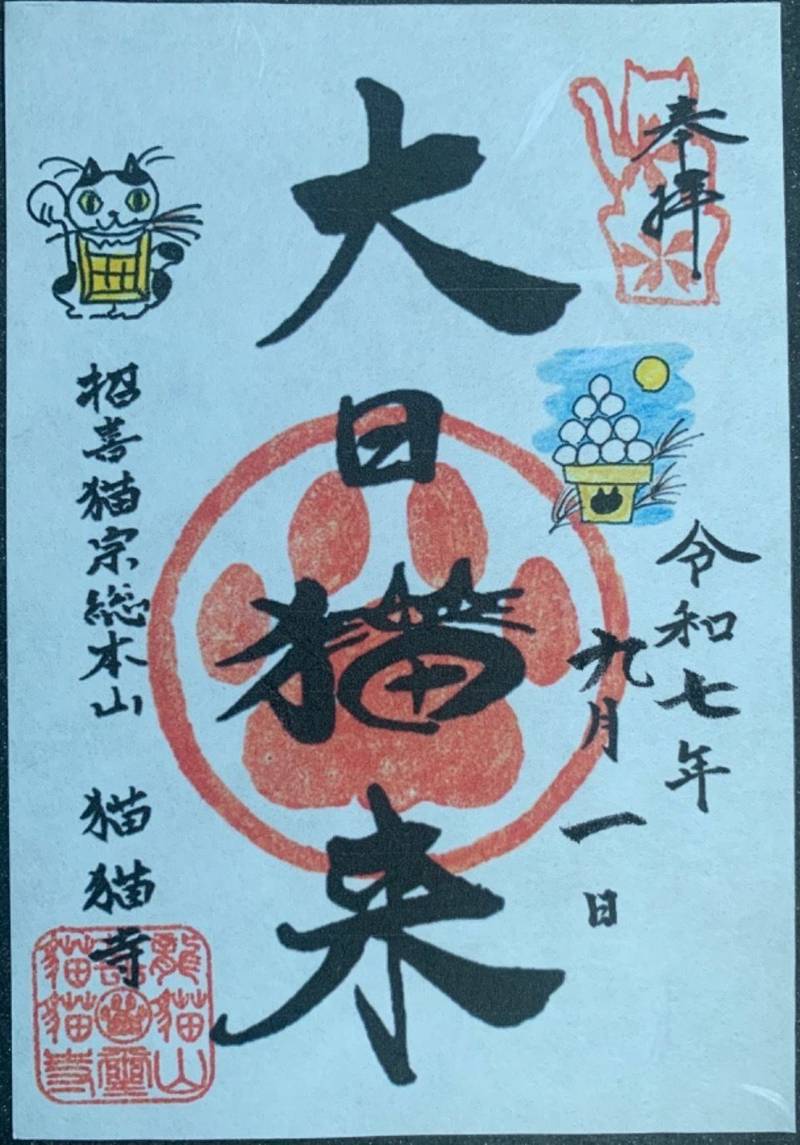 奉拝
令和七年
九月一日
大日猫来
招喜猫宗総本山 猫猫寺
龍猫山
猫猫寺